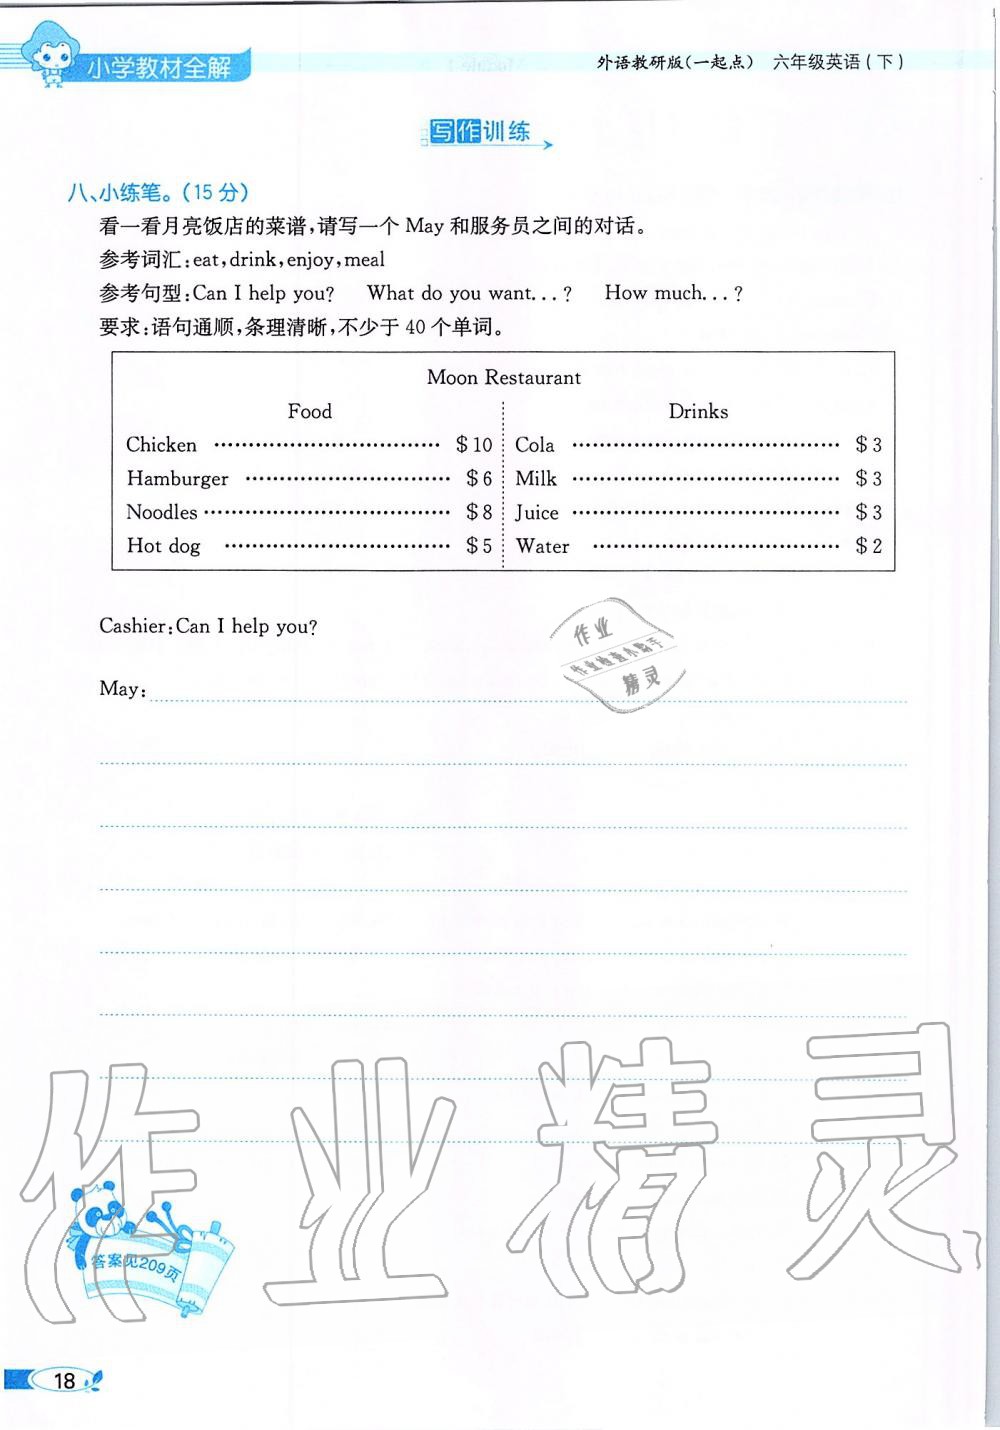 小学教材全解
外语教研版(一起点) 六年级英语(下)
写作训练
八、小练笔。(15分)
看一看月亮饭店的菜谱,请写一个 May 和服务员之间的对话。
参考词汇:eat,drink,enjoy,meal
参考句型:Can I help you? What do you want...? How much...?
要求:语句通顺,条理清晰,不少于 40 个单词。
Moon Restaurant
Food Drinks
Chicken ································ $10 Cola ······································ $3
Hamburger ····························· $6 Milk ······································ $3
Noodles ··································· $8 Juice ······································ $3
Hot dog ································ $5 Water ··································· $2
Cashier:Can I help you?
作业
作业检查小助手
精灵
May:
作业精灵
答案见209页
18